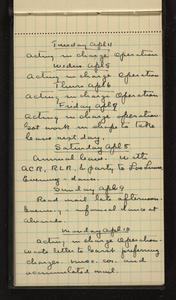 Tuesday Apl 4
Acting in charge Operation
Wednes Apl 5
Acting in charge Operation
Thurs Apl 6
Acting in charge Operation
Friday Apl 7
Acting in charge operation.
Got work in shape to take
leave next day.
Saturday Apl 8
Annual leave. With
ACR, RLR, & party to
Evening - dance.
Sunday Apl 9
Read most late afternoon.
Evening - informal dance at
Monday Apl 10
Acting in charge Operation.
Wrote letter to preferring
charges. misc. cor. and
accumulated mail.